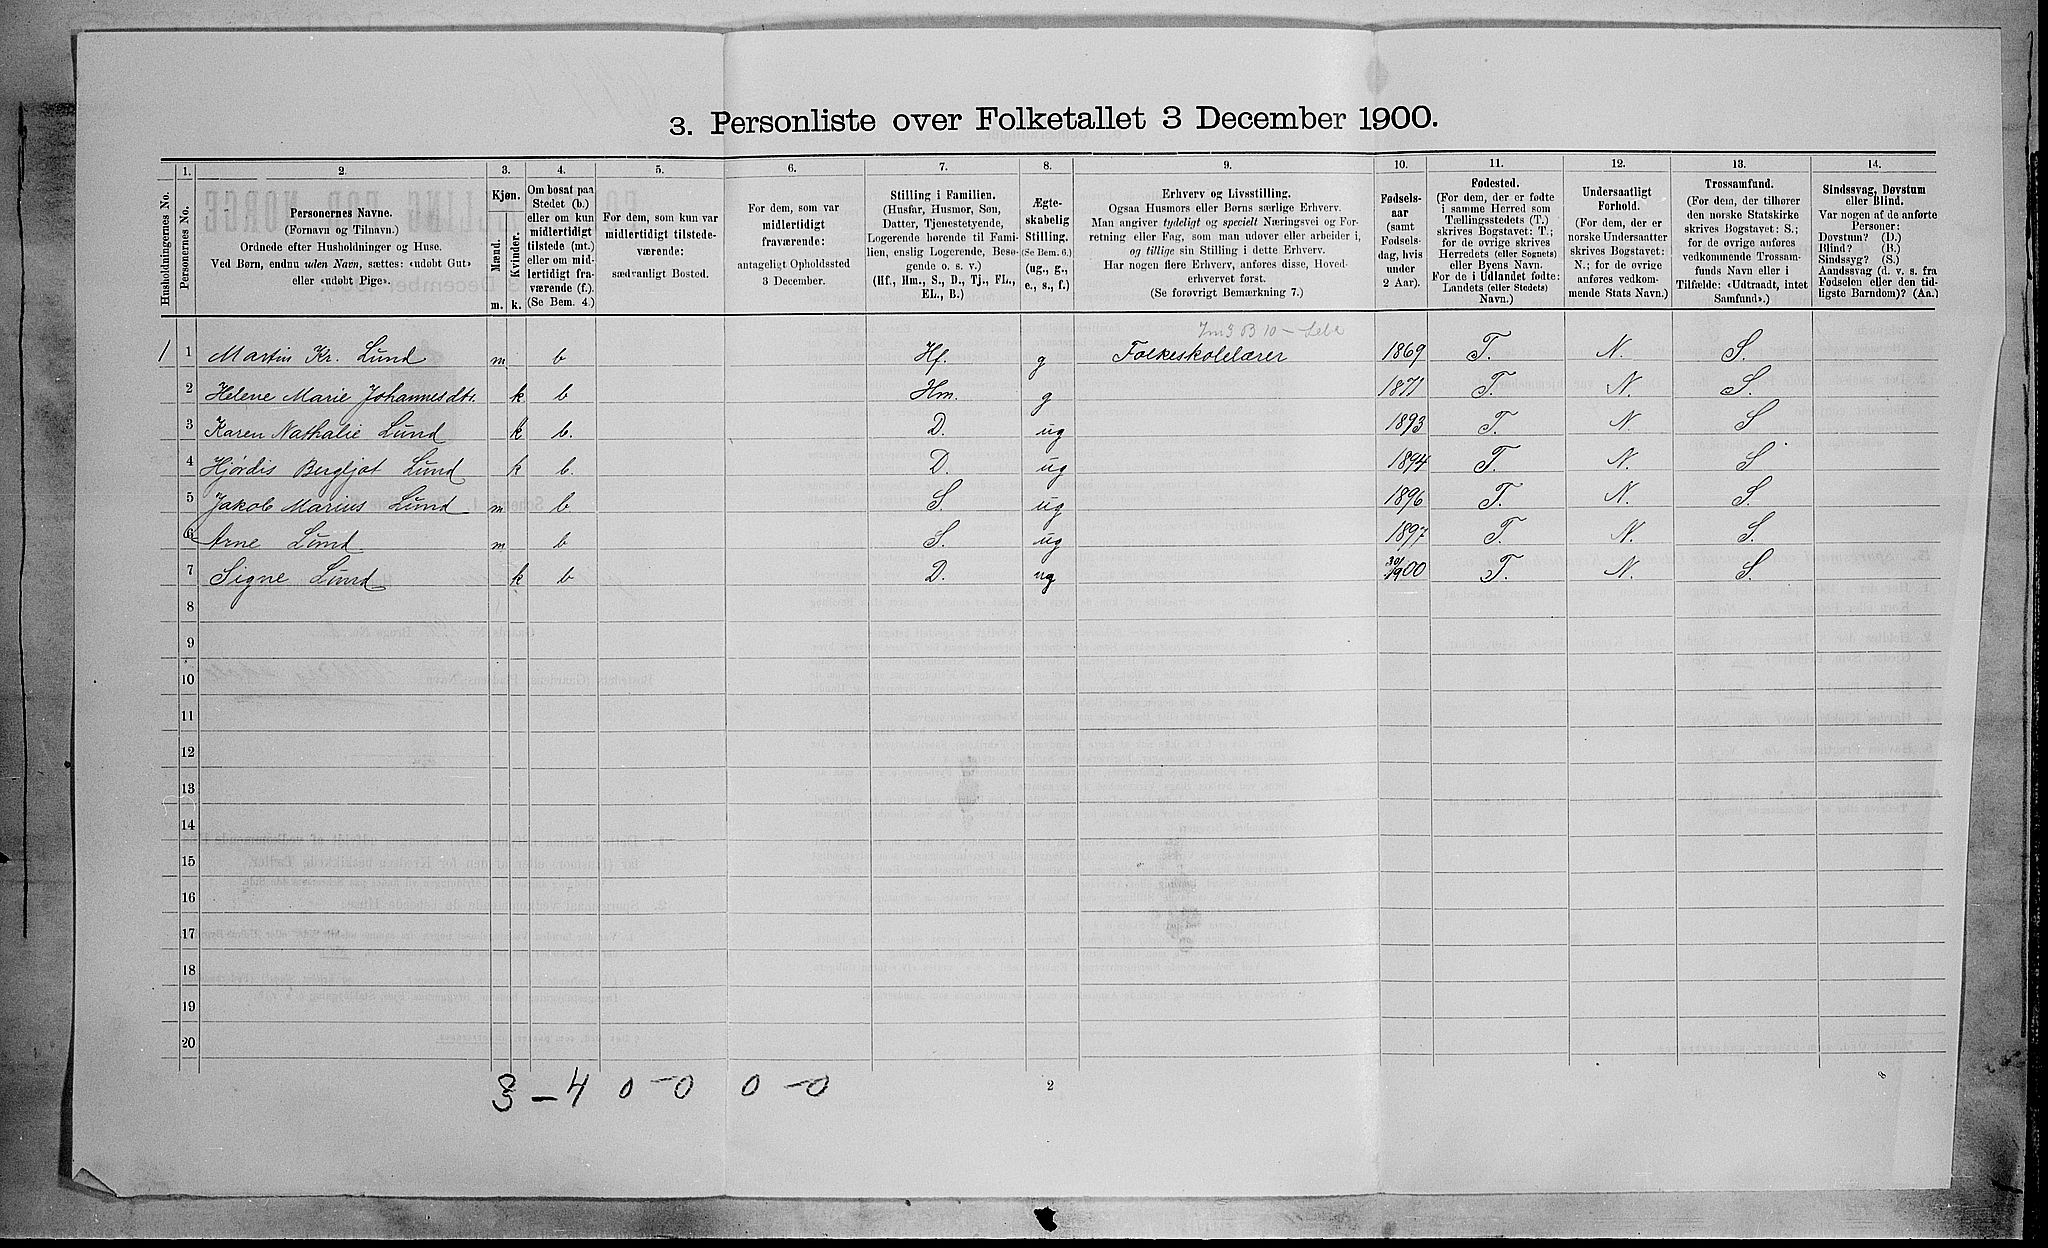 3. Personliste over Folketallet 3 December 1900.
Husholdningernes No.
1.
Personernes No.
2.
Personernes Navne.
(Fornavn og Tilnavn.)
Ordnede efter Husholdninger og Huse.
Ved Børn, endnu uden Navn, sættes: «udøbt Gut»
eller «udøbt Pige».
3.
Kjøn.
Mænd.
Kvinder.
m. k.
4.
Om bosat paa
Stedet (b.)
eller om kun
midlertidigt
tilstede (mt.)
eller om mid-
lertidigt fra-
værende (f.)
(Se Bem. 4.)
5.
For dem, som kun var
midlertidigt tilstede-
værende:
sædvanligt Bosted.
6.
For dem, som var
midlertidigt
fraværende:
antageligt Opholdssted
3 December.
7.
Stilling i Familien.
(Husfar, Husmor, Søn,
Datter, Tjenestetyende,
Logerende hørende til Fami-
lien, enslig Logerende, Besø-
gende o. s. v.)
(Hf., Hm., S., D., Tj., FL.,
EL., B.)
8.
Ægte-
skabelig
Stilling.
(Se Bem. 6.)
(ug., g.,
e., s., f.)
9.
Erhverv og Livsstilling.
Ogsaa Husmors eller Børns særlige Erhverv.
Man angiver tydeligt og specielt Næringsvei og For-
retning eller Fag, som man udøver eller arbeider i,
og tillige sin Stilling i dette Erhverv.
Har nogen flere Erhverv, anføres disse, Hoved-
erhvervet først.
(Se forøvrigt Bemærkning 7.)
10.
Fødsels-
aar
(samt
Fødsels-
dag, hvis
under
2 Aar).
11.
Fødested.
(For dem, der er fødte
i samme Herred som
Tællingsstedets (T.)
skrives Bogstavet: T.;
for de øvrige skrives
Herredets (eller Sognets)
eller Byens Navn.
For de i Udlandet fødte:
Landets (eller Stedets)
Navn.)
12.
Undersaatligt
Forhold.
(For dem, der er
norske Undersaatter
skrives Bogstavet:
N.; for de øvrige
anføres vedkom-
mende Stats Navn.)
13.
Trossamfund.
(For dem, der tilhører
den norske Statskirke
skrives Bogstavet: S.;
for de øvrige anføres
vedkommende Trossam-
funds Navn eller i
Tilfælde: «Udtraadt, intet
Samfund».)
14.
Sindssvag, Døvstum
eller Blind.
Var nogen af de anførte
Personer:
Døvstum? (D.)
Blind? (B.)
Sindssyg? (S.)
Aandssvag (d. v. s. fra
Fødselen eller den tid-
ligste Barndom)? (Aa.)
1 1 Martin Kr. Lund m b Hf. g Folkeskolelærer 1869 T. N. S.
2 Helene Marie Johannesdtr. k b Hm. g 1871 T. N. S.
3 Karen Nathalie Lund k b. D. ug 1893 T. N. S
4 Hjørdis Bergljot Lund k b. D. ug 1894 T. N. S
5 Jakob Marius Lund m b. S. ug 1896 T. N. S.
6 Arne Lund m b S. ug 1897 T. N. S.
7 Signe Lund k b D. ug 30/9 00 T. N. S.
8
9
10
11
12
13
14
15
16
17
18
19
20
3 – 4 0 – 0 0 – 0
2
8